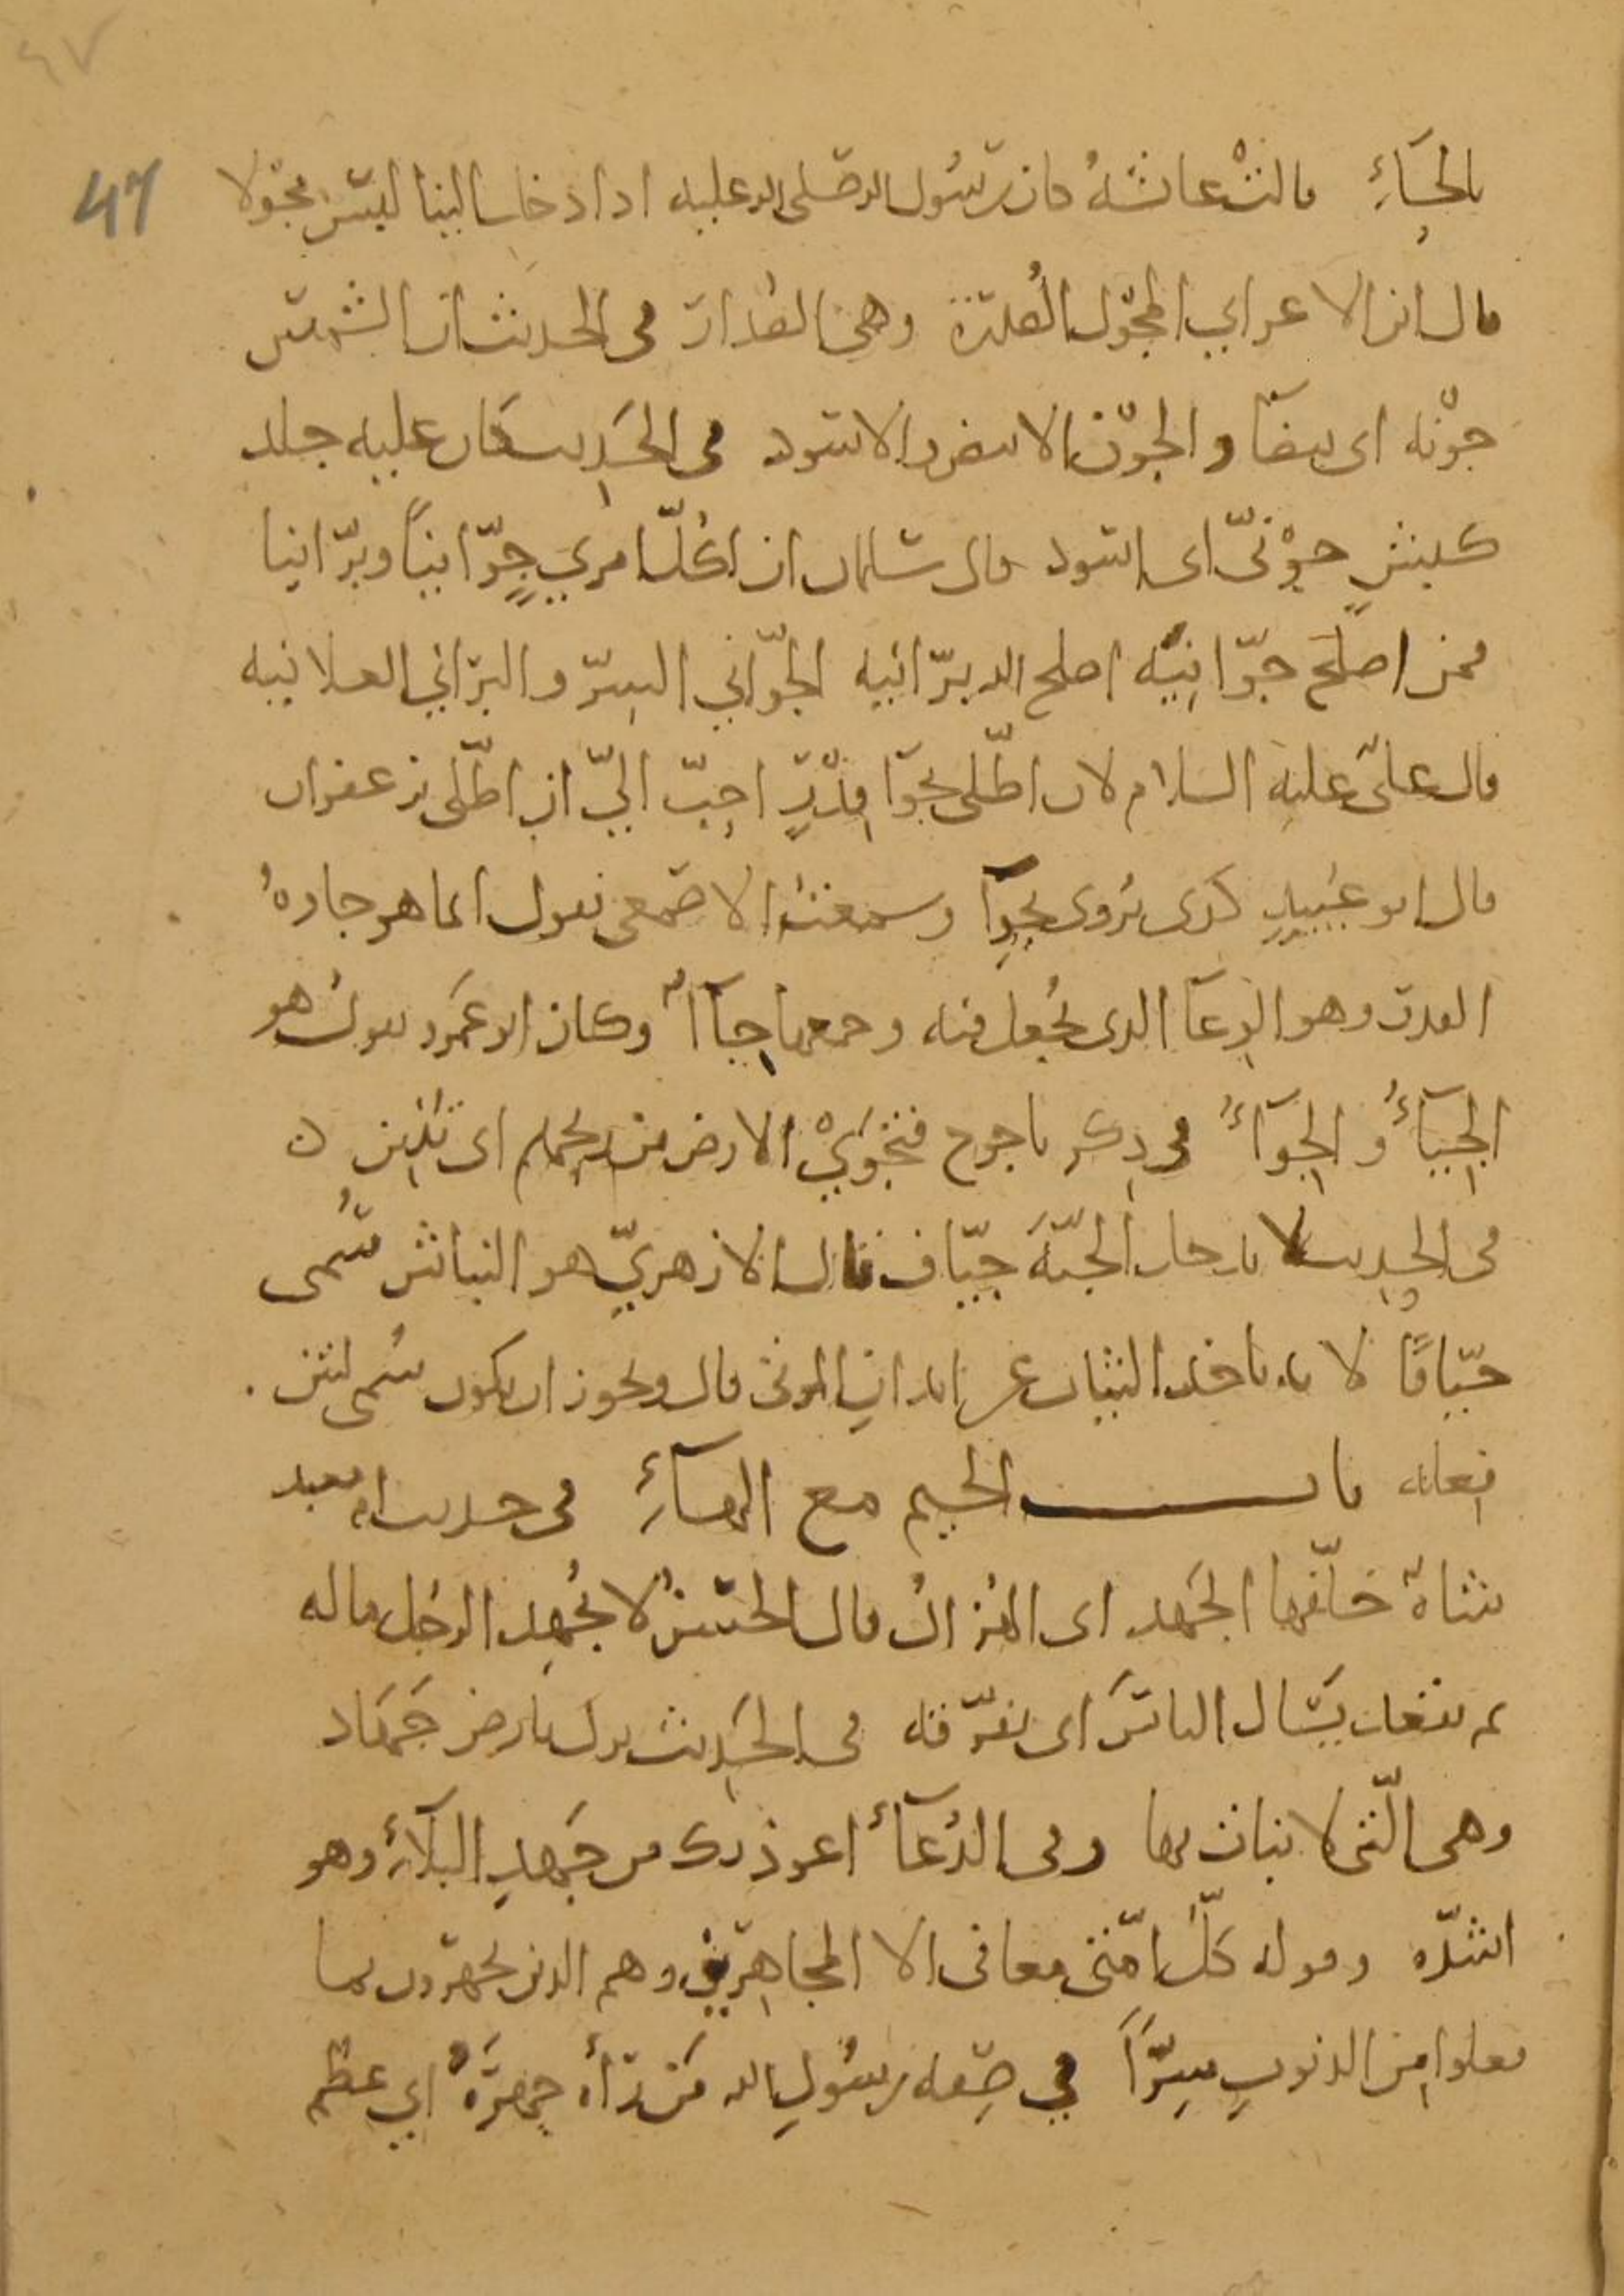 47
47
بالحَاءِ قالتْ عائشةُ كان رسُول الله صَلى الله عليه اذا دخل الينا لبسَ مجْوَلا
قال ابن الاعرابي المجْوَل الصُدرَة وهي الصُدار في الحديث ان الشمسَ
جوْنَة اى بيضَآ والجوْن الابيض والاسود في الحَدِيث كان عليه جلد
كبشٍ جوْنيّ اى اسود قال سَلمان ان لكُلّ امريٍ جوّانيًا وبرّانيا
فمن اصلحَ جوّانِيَّه اصلح الله برّانيه الجوّاني السِرّ والبرّاني العلانيه
قال عليّ عليه السلام لان اطّلي بجِوَآ قِدْرٍ احبّ اليّ ان اطّلى بزعفران
قال ابو عُبيدٍ كذى يُروى بجِوَآ وسمعتُ الاصمعي يقول انما هو جاوهُ
القدر وهو الوِعَآ الذى تُجعل فيه وجمعها جِآآ وكان ابو عَمرو يقولُ هو
الجِيَآءُ والجِوَآءُ في ذِكر ياجوج فتجْوَىْ الارض من ريحهم اى تُنْتِن ه
في الحدِيث لا يدخل الجنّةَ جيّاف قال الازهريّ هو النباش سُمى
جيّافًا لانه ياخذ الثياب عن ابدانِ الموتى قال ويجوز ان يكون سُمى لنتن
فعله باب الجيم مع الهآءِ في حديث ام معبد
شاةٌ خلّفها الجَهد اى الهُزالُ قال الحسَنُ لا يُجْهِد الرجُل ماله
ثم يقعد يسَال الناسَ اى يفرّقه في الحَدِيث نزل بارض جَهَاد
وهى الّتى لا نبات بها وفى الدُعَآءِ اعوذ بك من جَهدِ البَلآءِ وهو
اشدّه وقوله كلُّ امّتى معافى الا المجاهِرِين وهم الذين يجهرون بما
فعلوا من الذنوبِ سِرًّا في صِفة رسُولِ الله مَن رَآه جهَرَهُ اي عظم